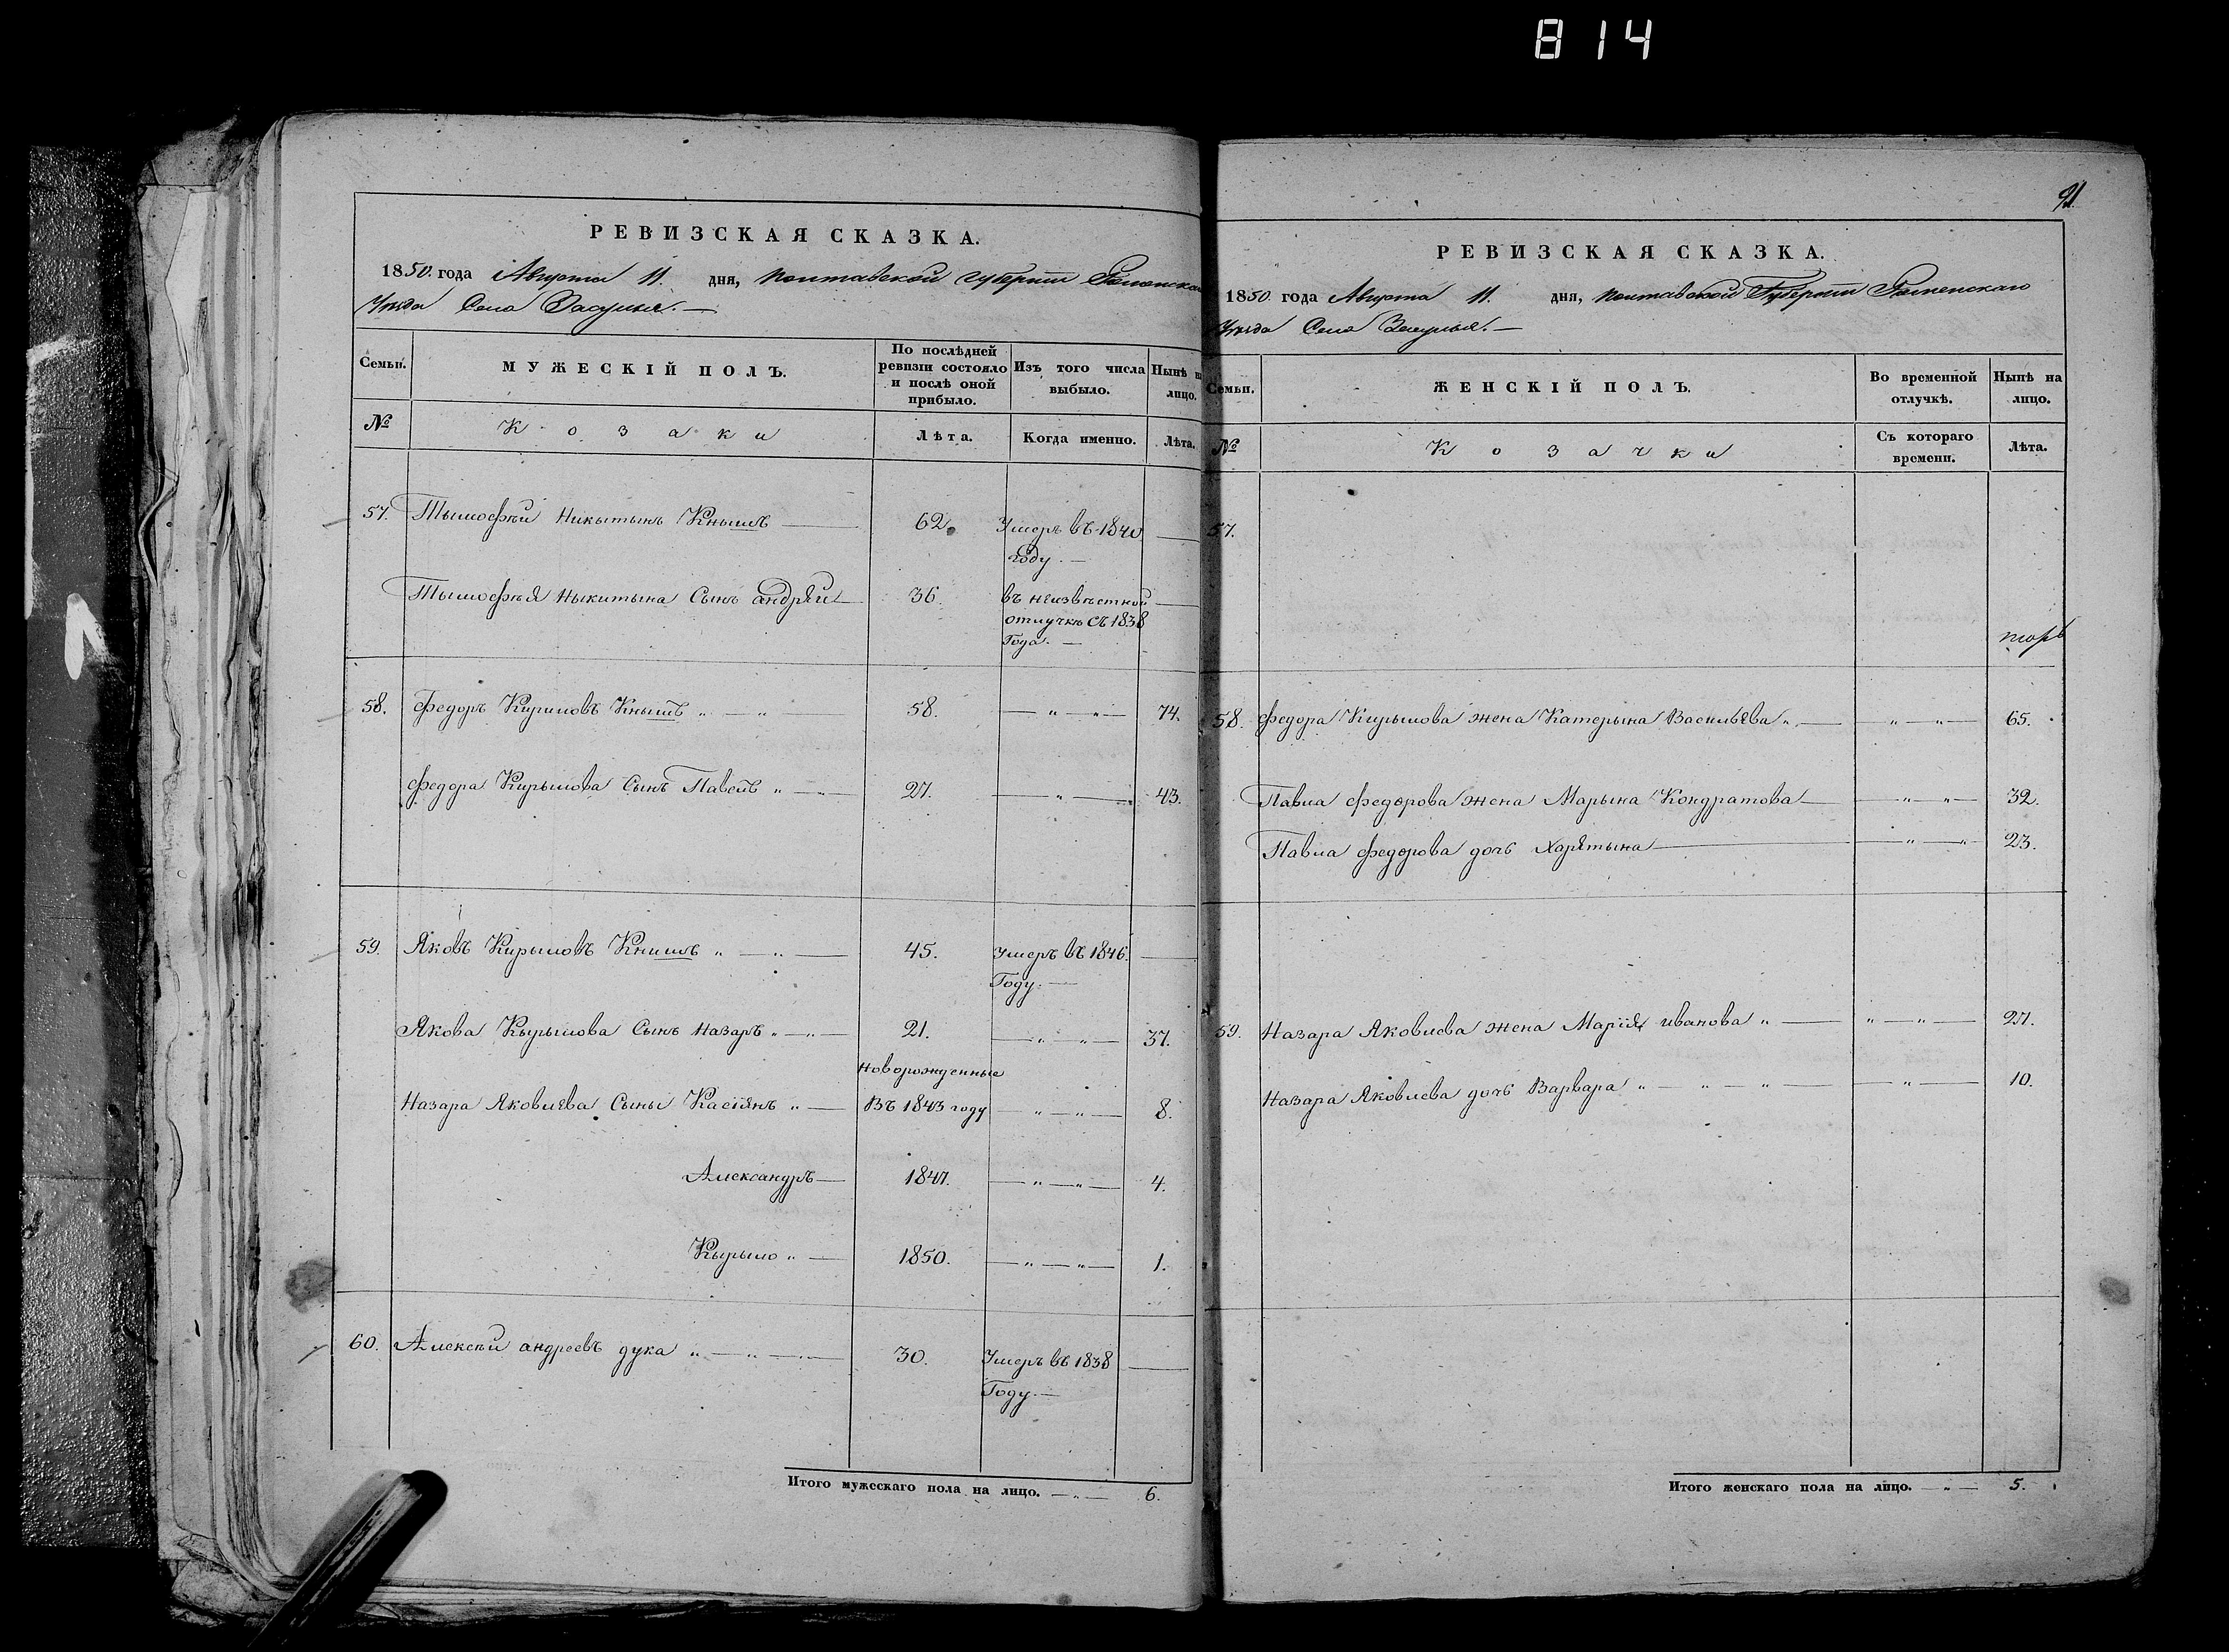 814
РЕВИЗСКАЯ СКАЗКА.
1850. года Августа 11. дня, Полтавской Губерніи Роменска
Уѣзда Села Засулья. —
Семьи. МУЖЕСКІЙ ПОЛЪ. По послѣдней ревизіи состояло и послѣ оной прибыло. Изъ того числа выбыло. Нынѣ на лицо.
№ Козаки Лѣта. Когда именно. Лѣта.
57. Тымофѣй Никытынъ Кнышъ — 62. Умеръ въ 1840 —
году. —
Тымофѣя Ныкитына Сынъ андрѣй — 36. въ неизвѣстной —
отлучкѣ съ 1838
Года. —
58. Федоръ Кириловъ Кнышъ „ — „ — 58. — „ — „ — 74.
Федора Кирылова Сынъ Павелъ „ — „ — 27. — „ — 43.
59. Яковъ Кирыловъ Книшъ „ — „ — 45. Умеръ въ 1846. —
Году. —
Якова Кырылова Сынъ Назаръ „ — „ — 21. — „ — „ — 37.
Новорожденные
Назара Яковлѣва Сыны Касіянъ „ — Въ 1843 году — „ — „ — 8.
Александръ — 1847. — „ — „ — 4.
Кырыло „ — 1850. — „ — „ — 1.
60. Алексѣй андреевъ дука „ — „ — „ — 30. Умеръ въ 1838 —
Году. —
Итого мужескаго пола на лицо. — „ — 6.
91.
РЕВИЗСКАЯ СКАЗКА.
1850. года Августа 11. дня, Полтавской Губерніи Роменскаго
Уѣзда Села Засулья. —
Семьи. ЖЕНСКІЙ ПОЛЪ. Во временной отлучкѣ. Нынѣ на лицо.
№ Козачки Съ котораго времени. Лѣта.
57.
58. Федора Кирылова жена Катерына Васильѣва „ — „ — „ — 65.
Павла Федорова жена Марына Кондратова — — „ — „ — 32.
Павла Федорова дочь Харѣтына — — „ — „ — 23.
59. Назара Яковлева жена Марія иванова „ — „ — „ — 27.
Назара Яковлева дочь Варвара „ — „ — „ — — „ — 10.
Итого женскаго пола на лицо. — „ — 5.